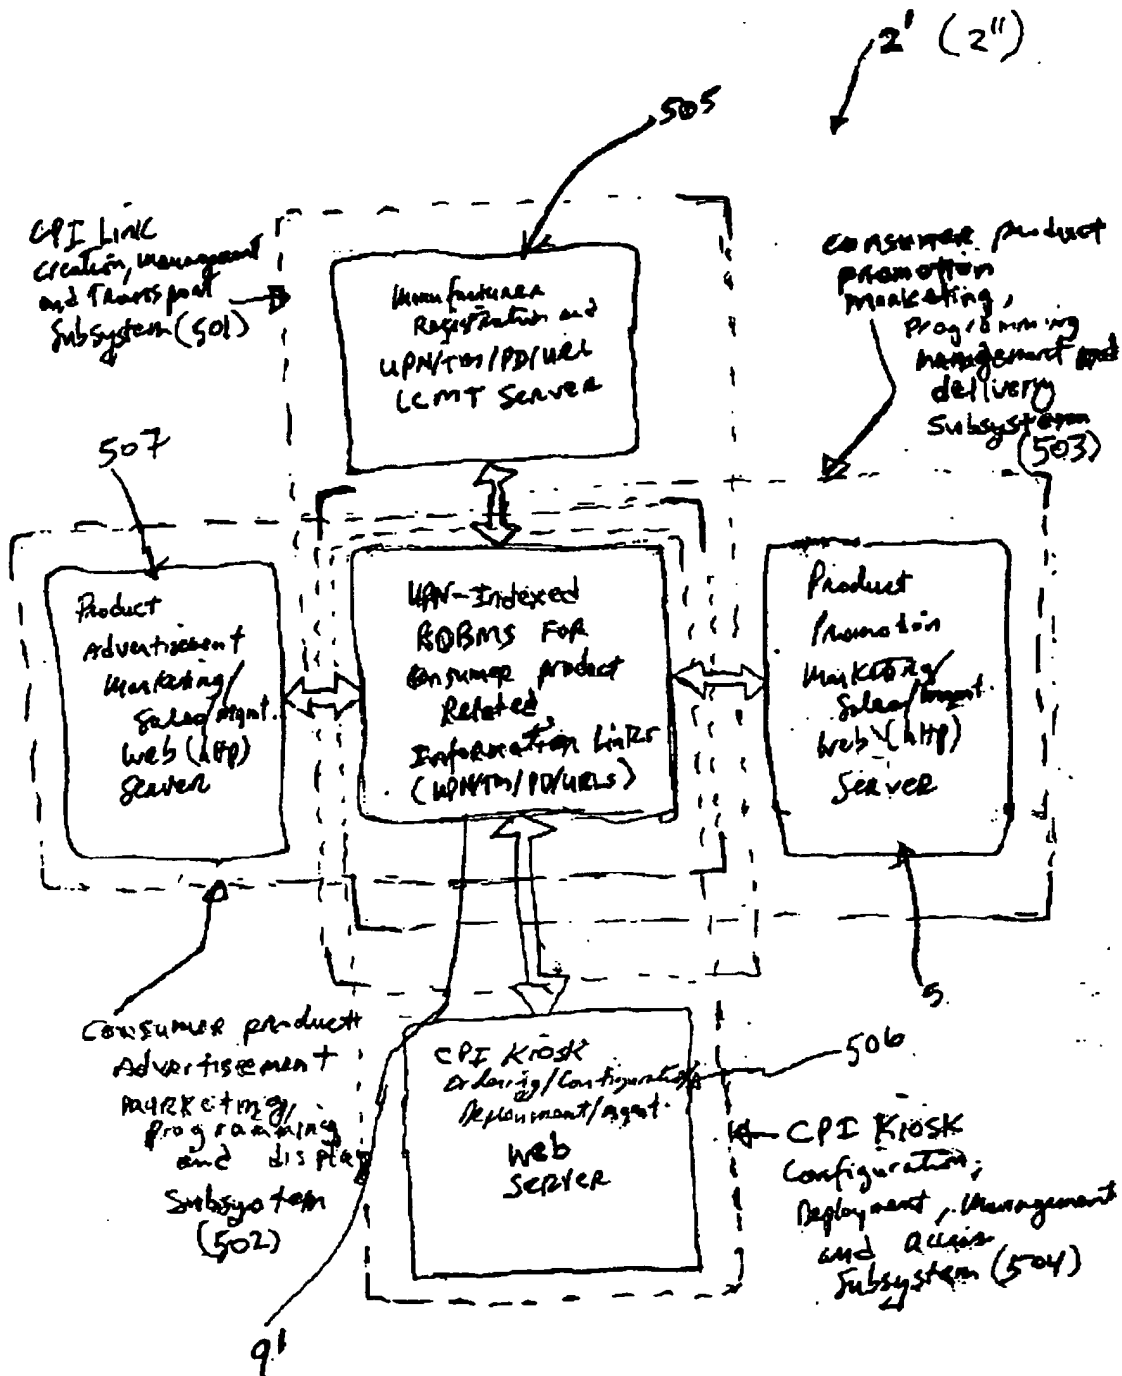 2' (2")
505
CPI Link
Creation, Management
and Transport
Subsystem (501)
Manufacturer
Registration and
UPN/TM/PD/URL
LCMT Server
Consumer product
promotion
marketing,
Programming
management and
delivery
Subsystem
(503)
507
Product
Advertisement
Marketing/
Sales/mgmt.
Web (http)
Server
UPN-Indexed
RDBMS For
Consumer product
Related
Information Links
(UPN/TM/PD/URLs)
Product
Promotion
Marketing/
Sales/mgmt.
Web (http)
Server
5
Consumer product
Advertisement
marketing,
programming
and display
Subsystem
(502)
CPI Kiosk
Ordering/Configuration
Deployment/mgmt.
Web
Server
506
CPI Kiosk
Configuration,
Deployment, Management
and access
Subsystem (504)
9'